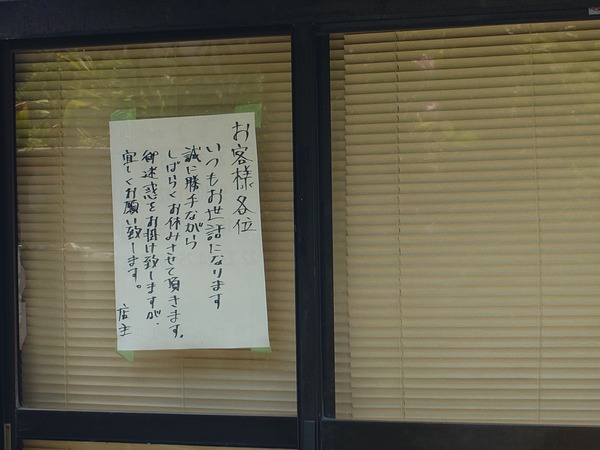 お客様各位
いつもお世話になります
誠に勝手ながら
しばらくお休みさせて頂きます。
御迷惑をお掛け致しますが、
宜しくお願い致します。
店主